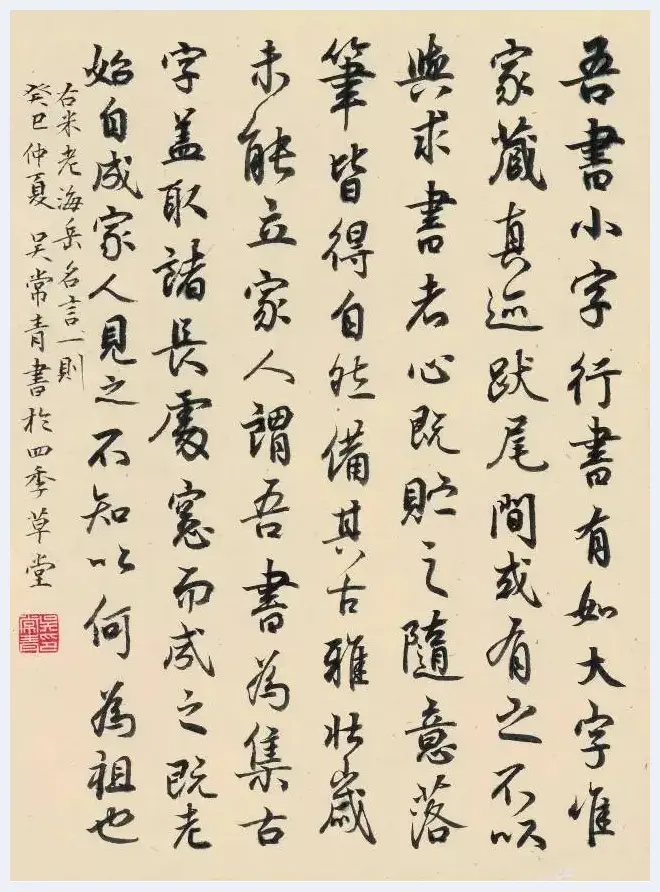 吾書小字行書有如大字唯
家藏真迹跋尾間或有之不以
與求書者心既貯之隨意落
筆皆得自然備其古雅壯歲
未能立家人謂吾書為集古
字盖取諸長處總而成之既老
始自成家人見之不知以何為祖也
右米老海岳名言一則
癸巳仲夏 吳常青書於四季草堂
吳印常青